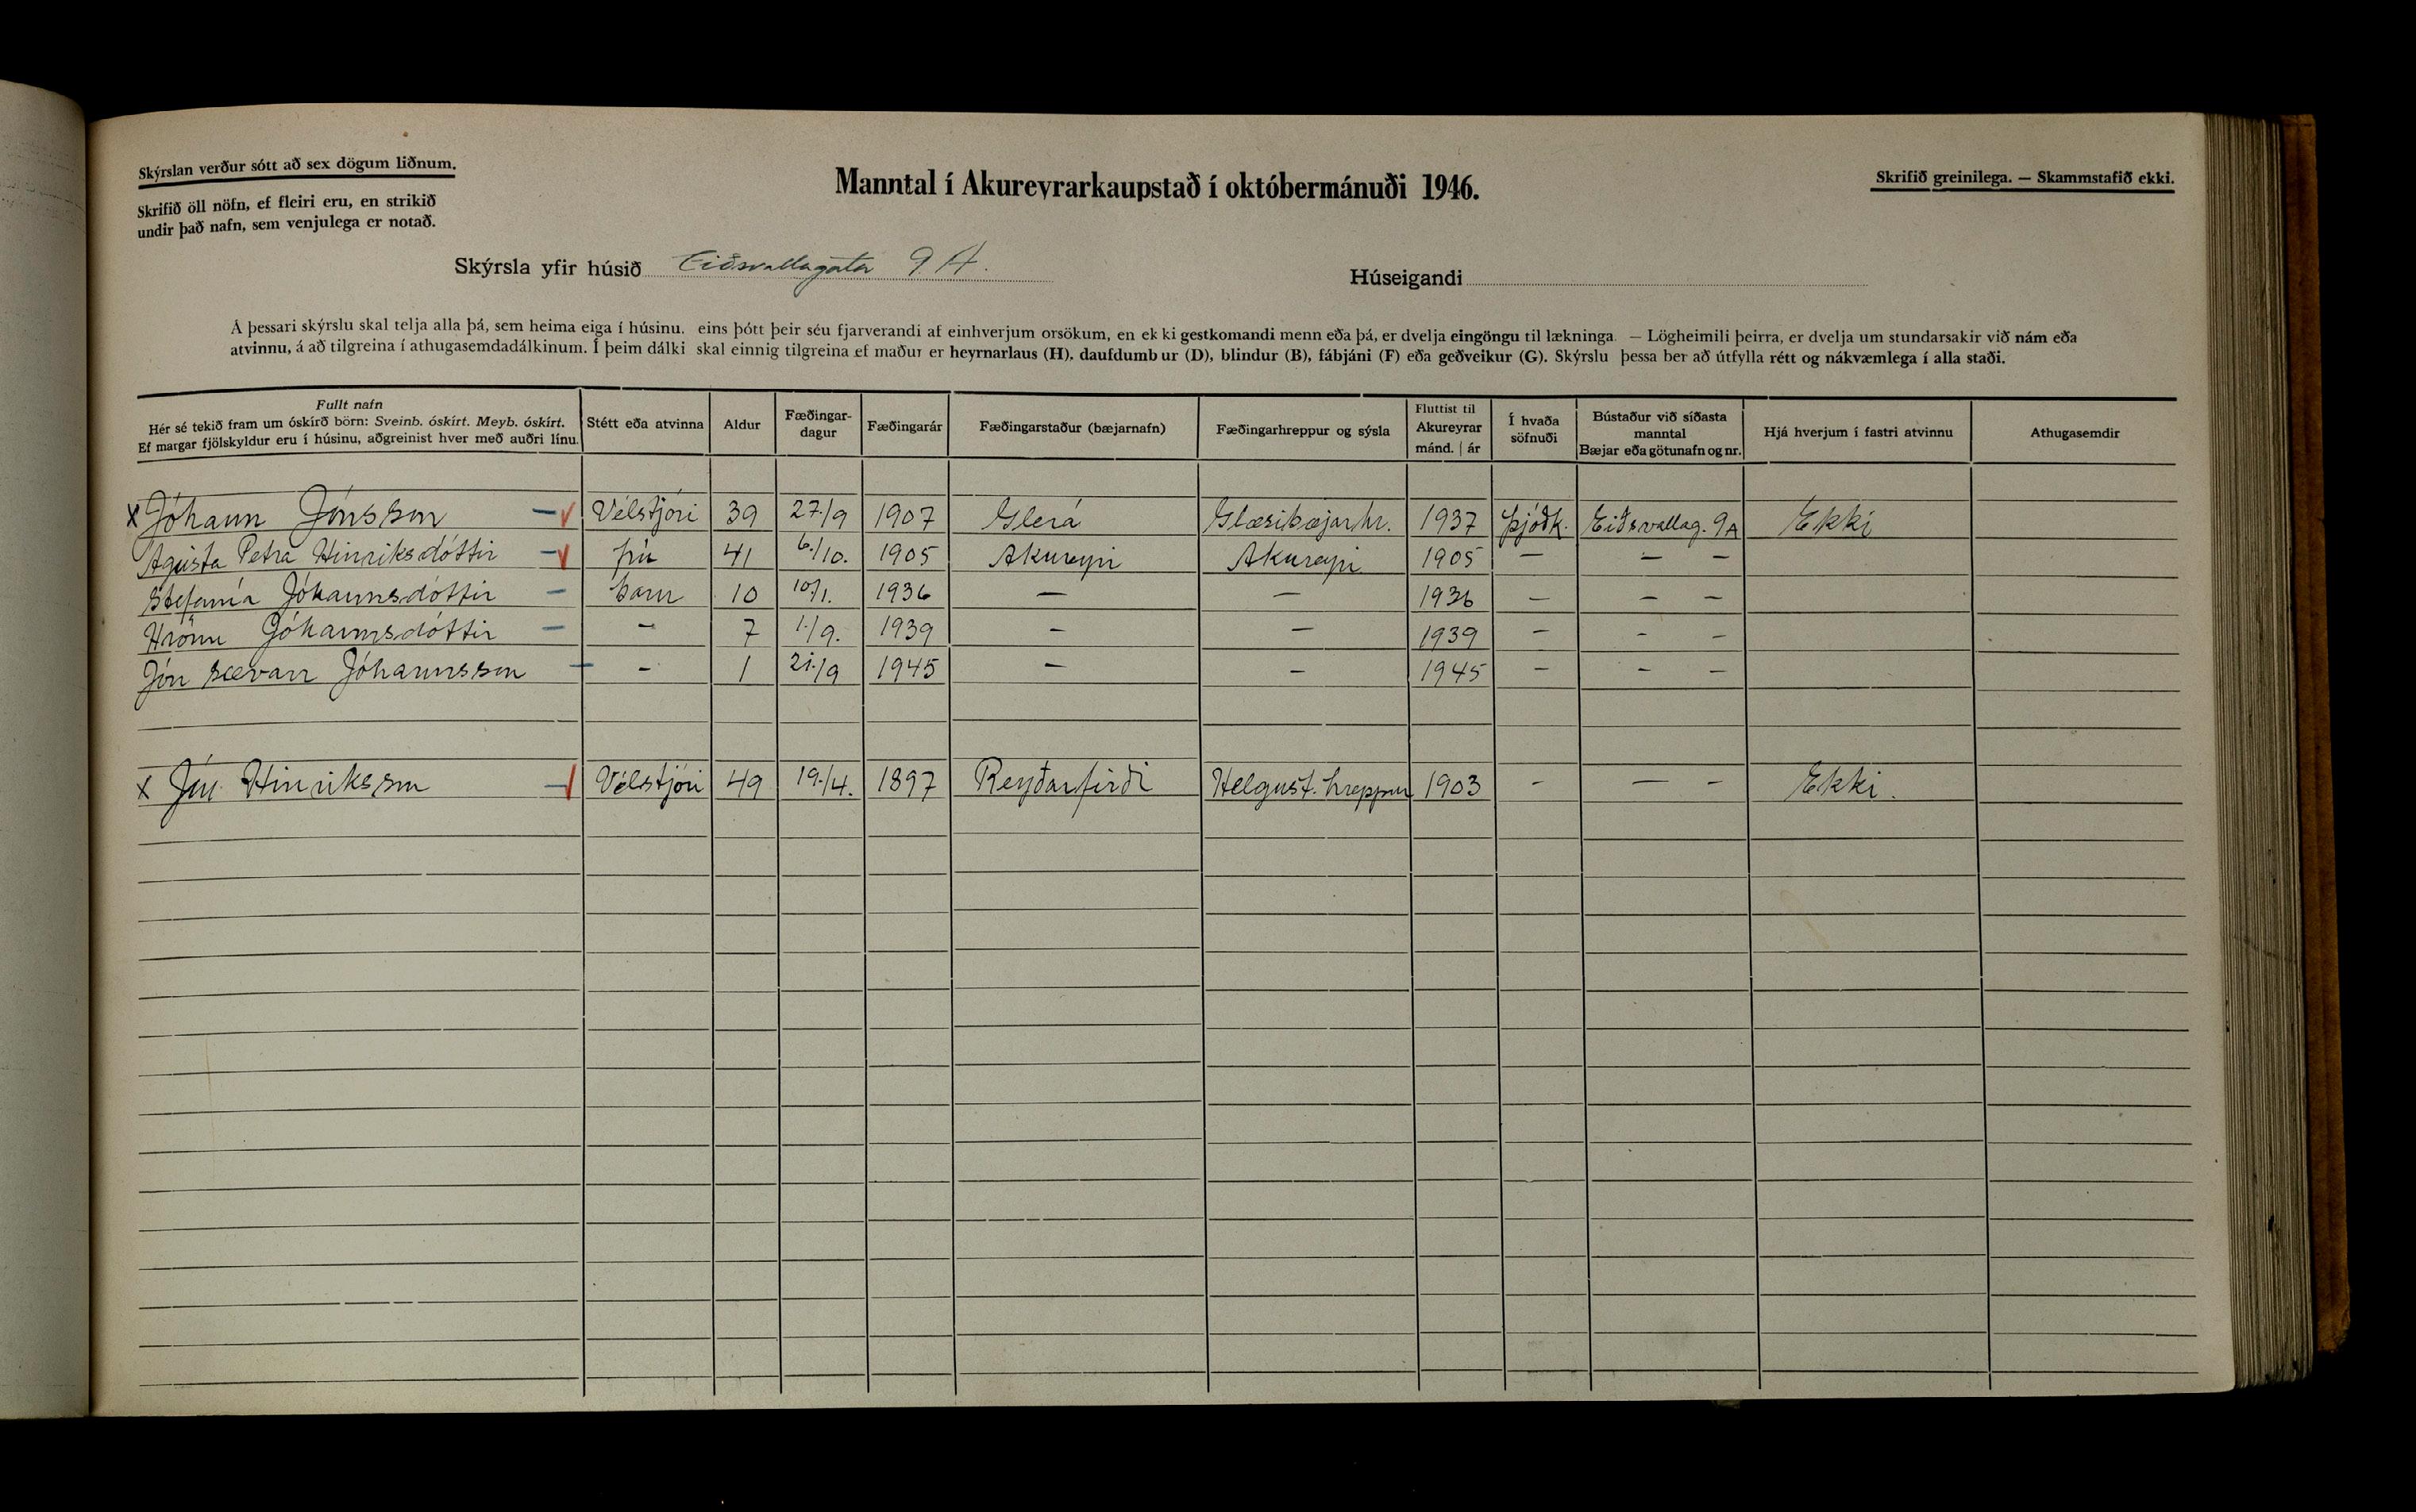 Skýrslan verður sótt að sex dögum liðnum.
Skrifið öll nöfn, ef fleiri eru, en strikið
undir það nafn, sem venjulega er notað.
Manntal í Akureyrarkaupstað í októbermánuði 1946.
Skrifið greinilega. — Skammstafið ekki.
Skýrsla yfir húsið Eiðsvallagata 9 A.
Húseigandi
Á þessari skýrslu skal telja alla þá, sem heima eiga í húsinu, eins þótt þeir séu fjarverandi af einhverjum orsökum, en ekki gestkomandi menn eða þá, er dvelja eingöngu til lækninga. — Lögheimili þeirra, er dvelja um stundarsakir við nám eða
atvinnu, á að tilgreina í athugasemdadálkinum. Í þeim dálki skal einnig tilgreina ef maður er heyrnarlaus (H), daufdumbur (D), blindur (B), fábjáni (F) eða geðveikur (G). Skýrslu þessa ber að útfylla rétt og nákvæmlega í alla staði.
Fullt nafn
Hér sé tekið fram um óskírð börn: Sveinb. óskírt. Meyb. óskírt.
Ef margar fjölskyldur eru í húsinu, aðgreinist hver með auðri línu.
Stétt eða atvinna
Aldur
Fæðingar-
dagur
Fæðingarár
Fæðingarstaður (bæjarnafn)
Fæðingarhreppur og sýsla
Fluttist til
Akureyrar
mánd. | ár
Í hvaða
söfnuði
Bústaður við síðasta
manntal
Bæjar eða götunafn og nr.
Hjá hverjum í fastri atvinnu
Athugasemdir
x Jóhann Jónsson — v Vélstjóri 39 27/9 1907 Glerá Glæsibæjarhr. 1937 Þjóðk. Eiðsvallag. 9A Ekki
Agústa Petra Hinriksdóttir — v frú 41 6./10. 1905 Akureyri Akureyri 1905 — — —
Stefanía Jóhannsdóttir — barn 10 10/1. 1936 — — 1936 — — —
Hrönn Jóhannsdóttir — — 7 1./9. 1939 — — 1939 — — —
Jón Sævarr Jóhannsson — — 1 21./9 1945 — — 1945 — — —
x Jón Hinriksson — Vélstjóri 49 19./4. 1897 Reyðarfirði Helgust. hreppur 1903 — — — Ekki.